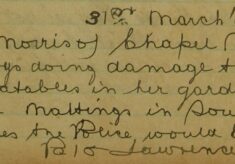 31st March'
Morris of Chapel
ys doing damage t
etables in her gard
Maltings in Sou
es the Police would b
P.C. 10 Lawrence